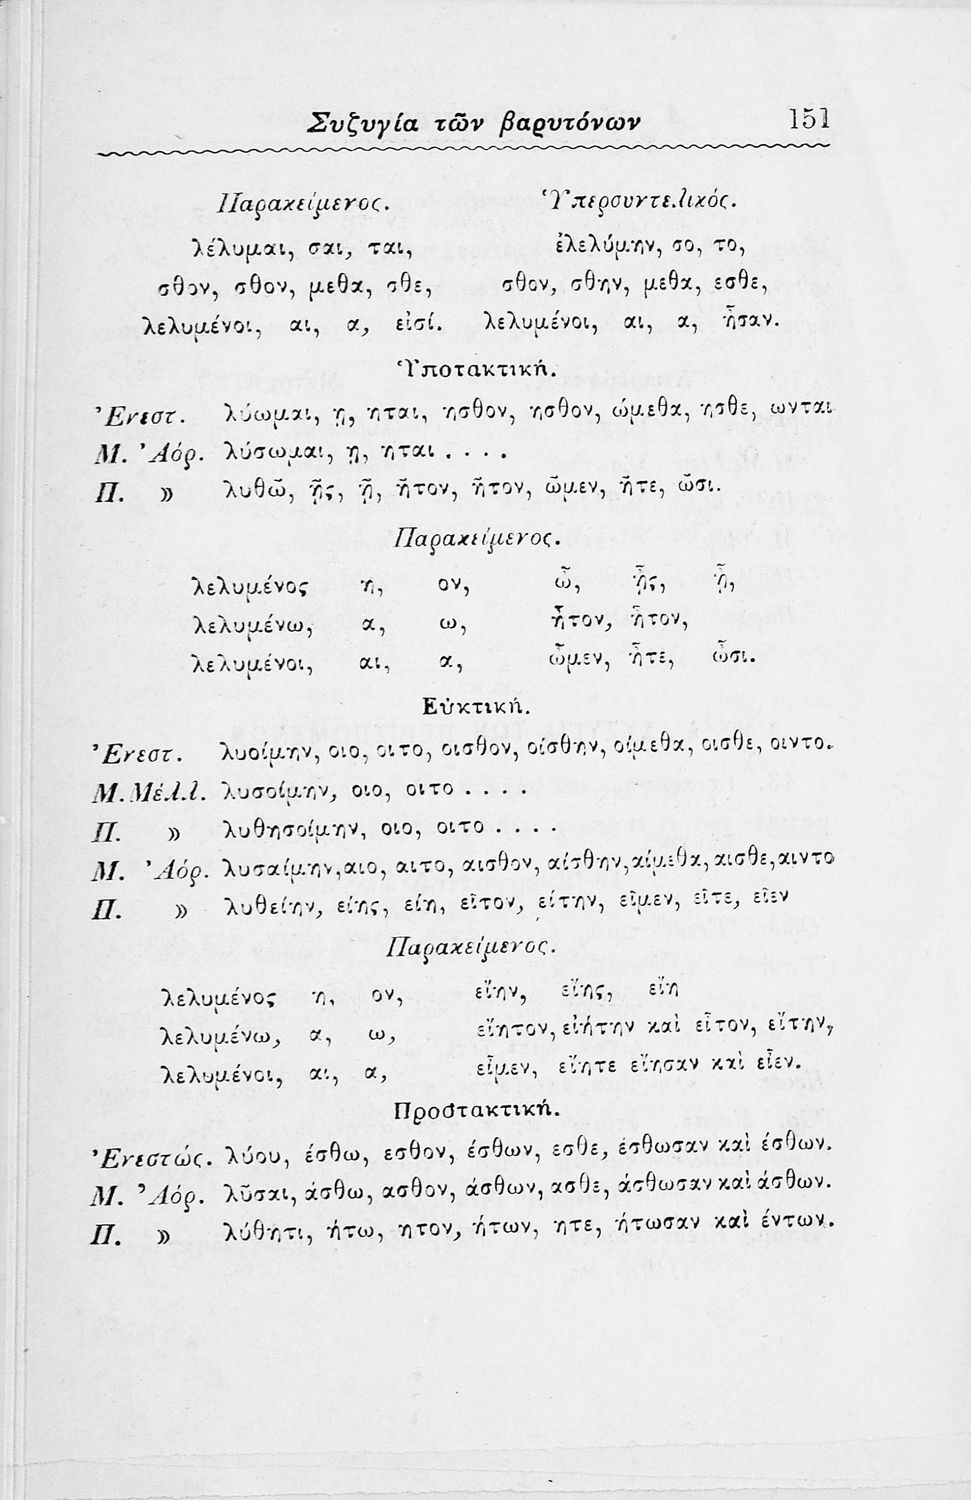 Συζυγία τῶν βαρυτόνων 151
Παρακείμενος. Ὑπερσυντελικός.
λέλυμαι, σαι, ται, ἐλελύμην, σο, το,
σθον, σθον, μεθα, σθε, σθον, σθην, μεθα, εσθε,
λελυμένοι, αι, α, εἰσί. λελυμένοι, αι, α, ἦσαν.
Ὑποτακτική.
Ἐνεστ. λύωμαι, ῃ, ηται, ησθον, ησθον, ώμεθα, ησθε, ωνται
Μ. Ἀόρ. λύσωμαι, ῃ, ηται . . . .
Π. » λυθῶ, ῇς, ῇ, ῆτον, ῆτον, ῶμεν, ῆτε, ῶσι.
Παρακείμενος.
λελυμένος η, ον, ὦ, ᾖς, ᾖ,
λελυμένω, α, ω, ἦτον, ἦτον,
λελυμένοι, αι, α, ὦμεν, ἦτε, ὦσι.
Εὐκτική.
Ἐνεστ. λυοίμην, οιο, οιτο, οισθον, οίσθην, οίμεθα, οισθε, οιντο.
Μ. Μέλλ. λυσοίμην, οιο, οιτο . . . .
Π. » λυθησοίμην, οιο, οιτο . . . .
Μ. Ἀόρ. λυσαίμην, αιο, αιτο, αισθον, αίσθην, αίμεθα, αισθε, αιντο
Π. » λυθείην, είης, είη, εῖτον, είτην, εῖμεν, εῖτε, εῖεν
Παρακείμενος.
λελυμένος η, ον, εἴην, εἴης, εἴη
λελυμένω, α, ω, εἴητον, εἰήτην καὶ εἶτον, εἴτην,
λελυμένοι, αι, α, εἶμεν, εἴητε εἴησαν καὶ εἶεν.
Προστακτική.
Ἐνεστώς. λύου, έσθω, εσθον, έσθων, εσθε, έσθωσαν καὶ έσθων.
Μ. Ἀόρ. λῦσαι, άσθω, ασθον, άσθων, ασθε, άσθωσαν καὶ άσθων.
Π. » λύθητι, ήτω, ητον, ήτων, ητε, ήτωσαν καὶ έντων.